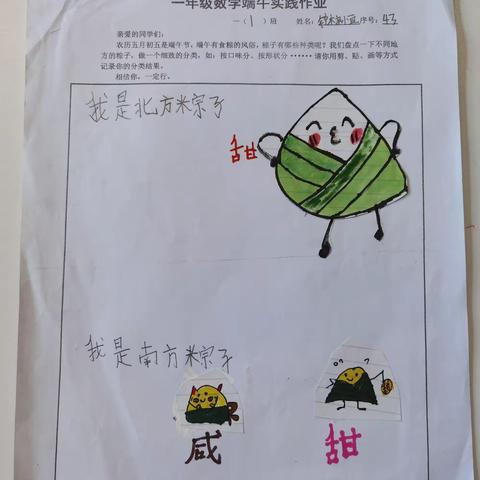 一年级数学端午实践作业
一（1）班 姓名： 序号：43
亲爱的同学们：
农历五月初五是端午节，端午有食粽的风俗，粽子有哪些种类呢？我们盘点一下不同地
方的粽子，做一个细致的分类，如：按口味分、按形状分……请你用剪、贴、画等方式
记录你的分类结果。
相信你，一定行。
我是北方米宗子
甜
我是南方米宗子
咸 甜